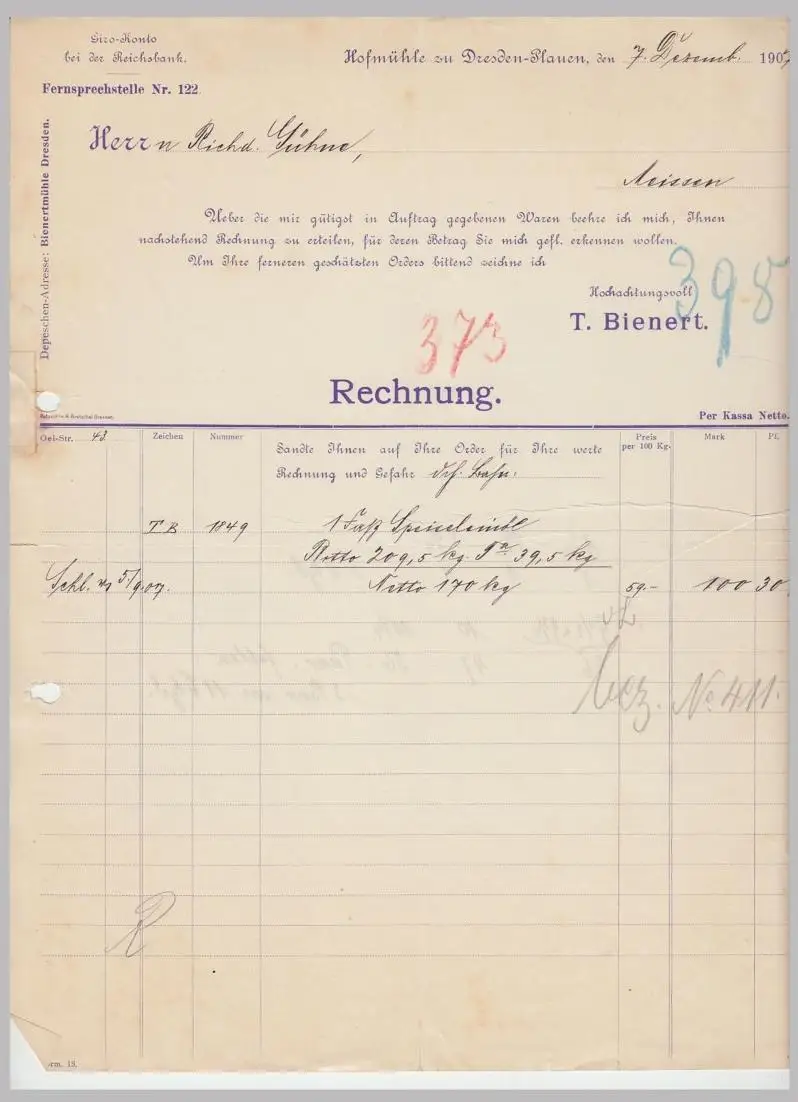 Giro-Konto
bei der Reichsbank.
Fernsprechstelle Nr. 122.
Hofmühle zu Dresden-Plauen, den 7. Dezemb. 1907
Depeschen-Adresse: Bienertmühle Dresden.
Herrn Richd. Gühne,
Meissen
Ueber die mir gütigst in Auftrag gegebenen Waren beehre ich mich, Ihnen
nachstehend Rechnung zu erteilen, für deren Betrag Sie mich gefl. erkennen wollen.
Um Ihre ferneren geschätzten Orders bittend zeichne ich
Hochachtungsvoll
T. Bienert.
398
373
Rechnung.
Per Kassa Netto.
Oel-Str. 43
Zeichen
Nummer
Preis
per 100 Kg.
Mark
Pf.
Sandte Ihnen auf Ihre Order für Ihre werte
Rechnung und Gefahr dch. Bahn.
T B 1849 1 Faß Speiseleinöl
Brutto 209,5 kg. Ta 39,5 kg
Schl. vs 5/9.07. Netto 170 kg 59.- 100 30
bez. No 411.
rm. 18.